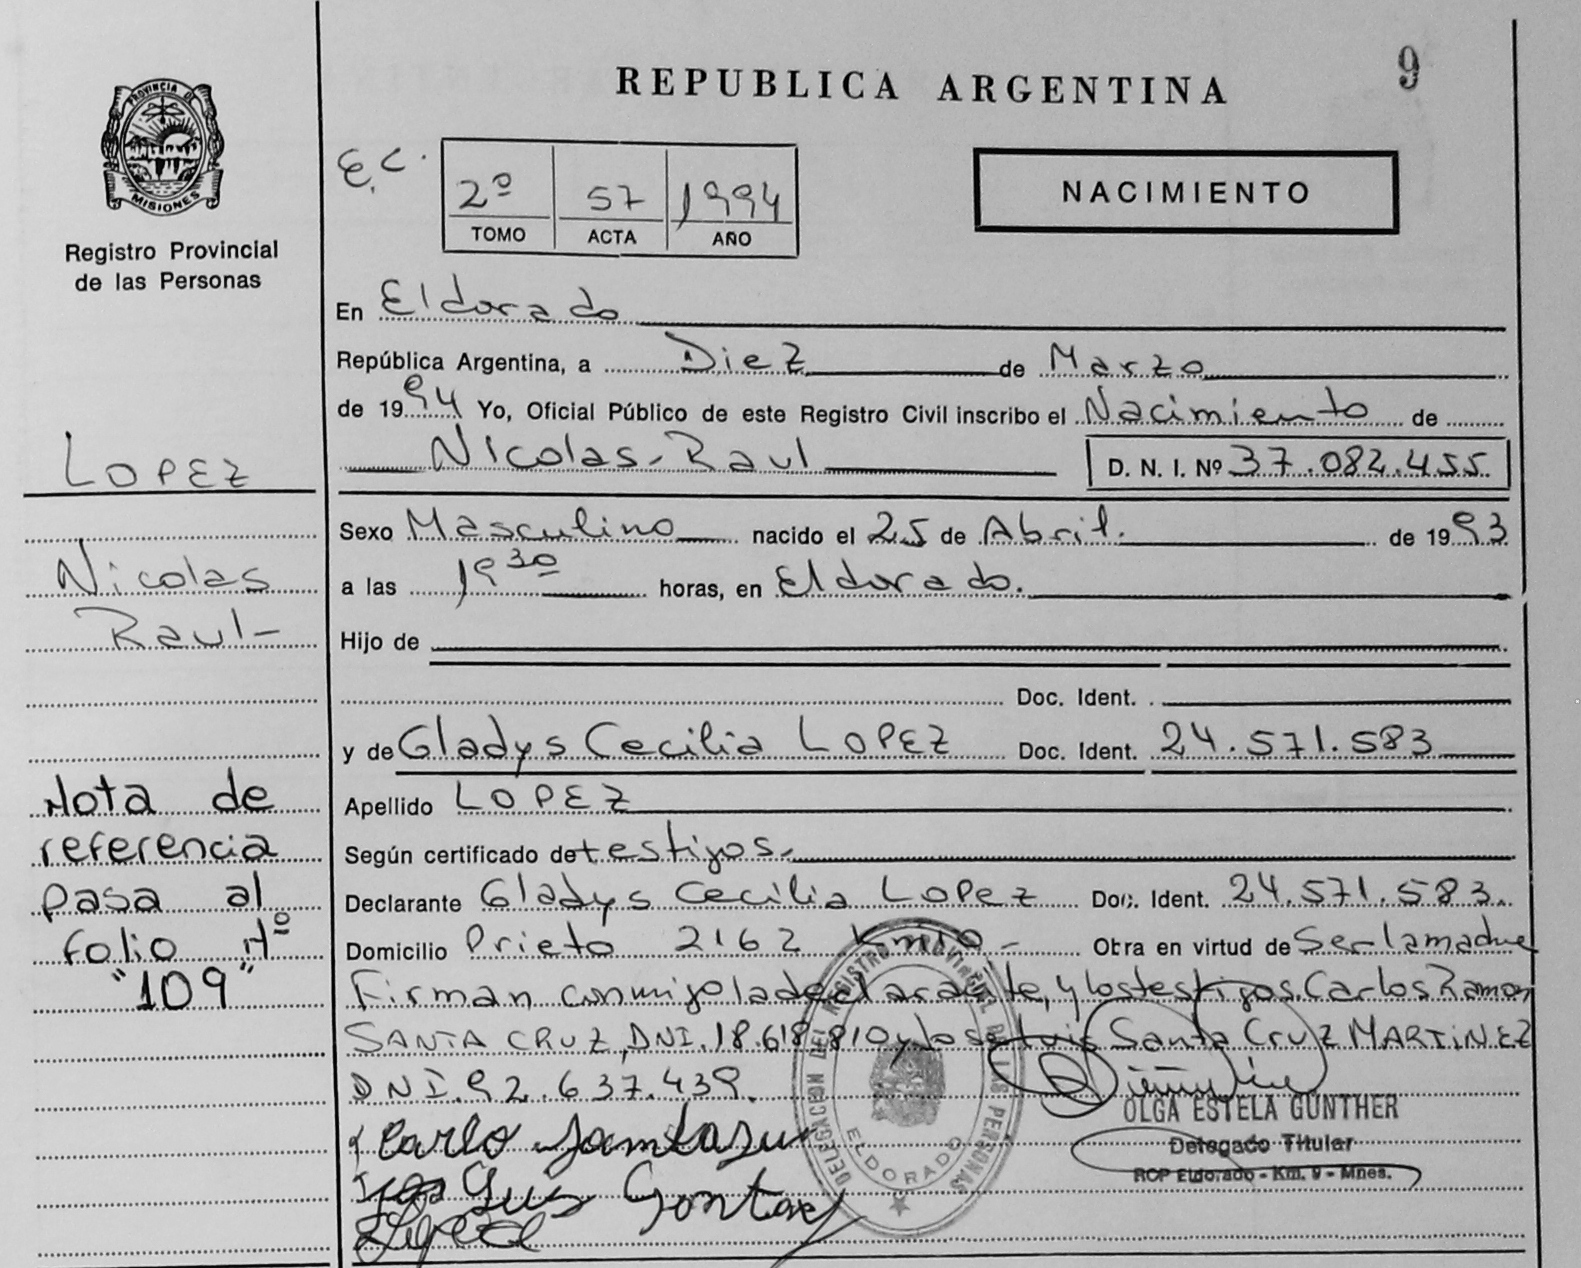 REPUBLICA ARGENTINA
9
PROVINCIA DE
MISIONES
Registro Provincial
de las Personas
E.C.
2º 57 1994
TOMO ACTA AÑO
NACIMIENTO
En Eldorado
República Argentina, a Diez de Marzo
de 1994 Yo, Oficial Público de este Registro Civil inscribo el Nacimiento de
Nicolas-Raul D. N. I. Nº 37.082.455
LOPEZ
Nicolas
Raul-
Sexo Masculino nacido el 25 de Abril. de 1993
a las 19 30 horas, en Eldorado.
Hijo de
Doc. Ident.
y de Gladys Cecilia LOPEZ Doc. Ident. 24.571.583
Apellido LOPEZ
Según certificado de testigos.
Declarante Gladys Cecilia LOPez Doc. Ident. 24.571.583.
Domicilio Prieto 2162 Km10- Obra en virtud de Ser la madre
Firman conmigo la declarante, y los testigos. Carlos Ramon
SANTA CRUZ, DNI. 18.618.810 y Jose Luis Santa Cruz MARTINEZ
DNI. 92.637.439.
Nota de
referencia
pasa al
folio Nº
"109"
DELEGACION DEL REGISTRO PROVINCIAL DE LAS PERSONAS
ELDORADO
OLGA ESTELA GUNTHER
Delegado Titular
RCP Eldorado - Km. 9 - Mnes.